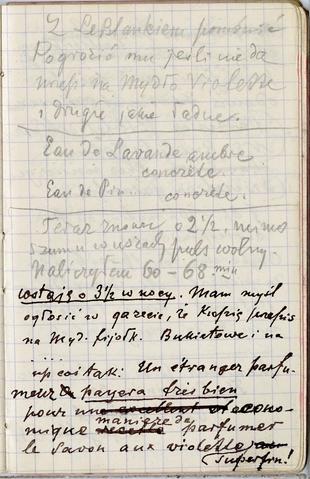 Z Leblankiem pomówić
Pogrozić mu jeśli nie da
na Mydło Violette
i drugie jakie ładne.
Eau de Lavande ambrée
concrète.
Eau de Pin concrète.
Teraz znowu o 2½, mimo
szumu w uszach puls wolny.
Naliczyłem 60 – 68 min
wstaję o 3½ w nocy. Mam myśl
ogłosić w gazecie, że kupię przepis
na Myd. fijołk. Bukietowe i na
np coś tak: Un étranger parfu-
meur payera très bien
pour une excellent et econo-
mique recette manière de parfumer
le Savon aux violettes
(superfin!